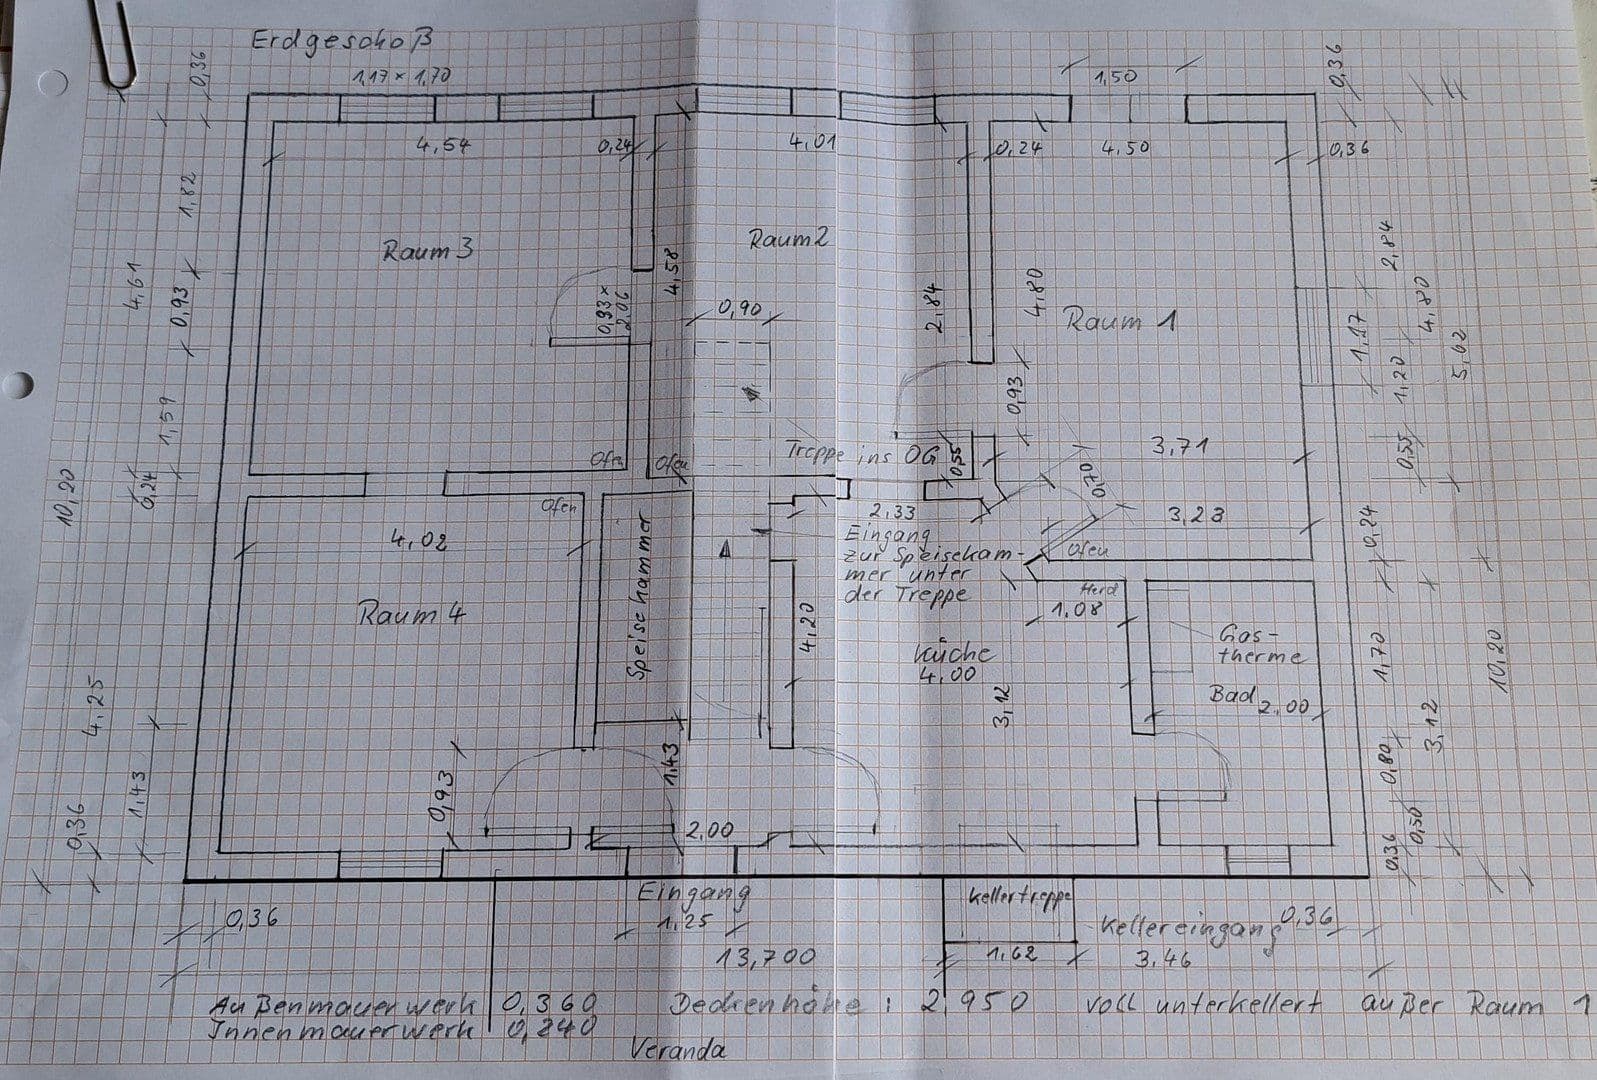 Erdgeschoß
1,17 × 1,70
1,50
0,36
0,36
4,54
0,24
4,01
0,24
4,50
0,36
1,82
Raum 3
Raum 2
2,84
4,61
0,93
4,58
0,93 ×
2,06
0,90
2,84
4,80
Raum 1
1,17
4,80
1,20
5,62
1,59
0,93
Treppe ins OG
0,55
3,71
0,55
Ofen
Ofen
0,24
10,20
0,70
Ofen
2,33
3,23
0,24
4,02
Speisekammer
Eingang
zur Speisekam-
mer unter
der Treppe
Ofen
Herd
1,08
Raum 4
4,20
Küche
4,00
Gas-
therme
Bad
2,00
1,70
10,20
4,25
3,12
3,12
1,43
1,43
0,93
0,80
0,36
2,00
0,50
0,36
0,36
Eingang
1,25
Kellertreppe
Kellereingang
0,36
13,700
1,62
3,46
Außenmauerwerk 0,360
Innenmauerwerk 0,240
Deckenhöhe : 2,950
voll unterkellert außer Raum 1
Veranda